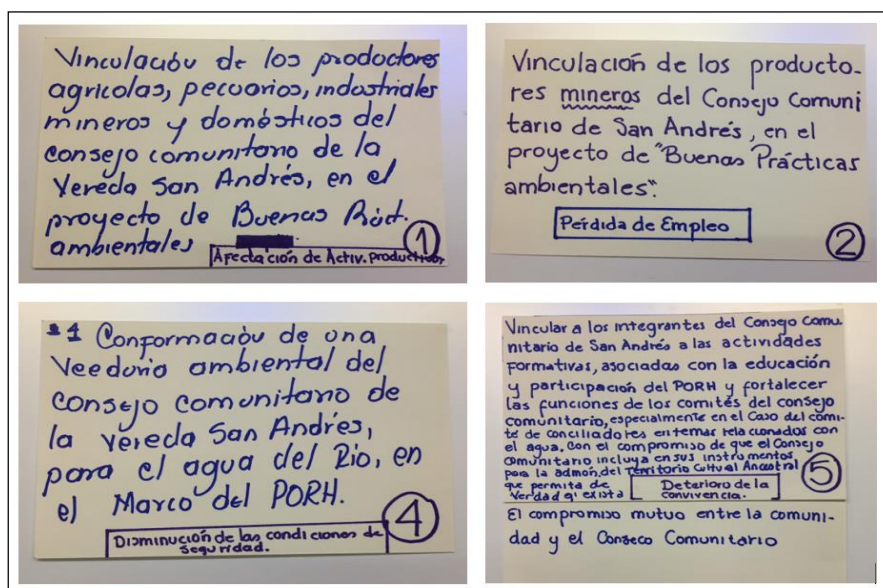 Vinculación de los productores
agricolas, pecuarios, industriales
mineros y domésticos del
consejo comunitario de la
Vereda San Andrés, en el
proyecto de Buenas Práct.
ambientales
Afectación de Activ. productivas
1
Vinculación de los producto-
res mineros del Consejo Comuni
tario de San Andrés, en el
proyecto de "Buenas Prácticas
ambientales".
Pérdida de Empleo
2
1 Conformación de una
Veeduria ambiental del
consejo comunitario de
la vereda San Andres,
para el agua del Rio, en
el Marco del PORH.
4
Disminución de las condiciones de
seguridad.
Vincular a los integrantes del Consejo Comu
nitario de San Andrés a las actividades
formativas, asociadas con la educación
y participación del PORH y fortalecer
las funciones de los comités del consejo
comunitario, especialmente en el Caso del comi-
té de conciliadores en temas relacionados con
el agua. Con el compromiso de que el Consejo
comunitario incluya en sus instrumentos
para la admón. del Territorio Cultural Ancestral
que permita de
verdad q' exista
Deterioro de la
convivencia.
5
El compromiso mutuo entre la comuni-
dad y el Conseco Comunitario